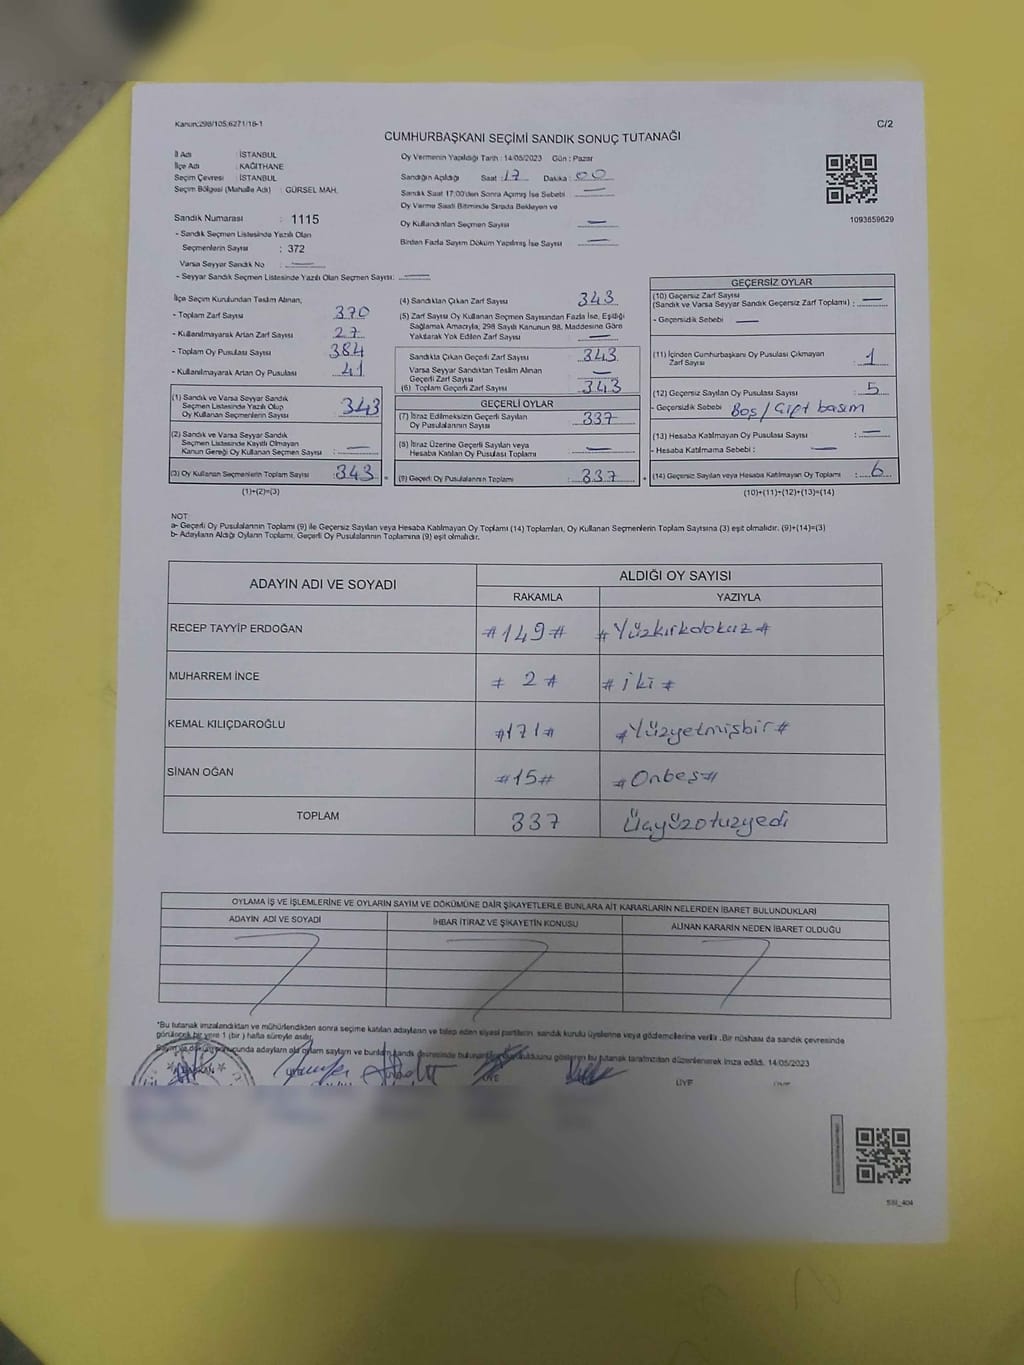 Kanun:298/105,6271/18-1
C/2
CUMHURBAŞKANI SEÇİMİ SANDIK SONUÇ TUTANAĞI
İl Adı : İSTANBUL
İlçe Adı : KAĞITHANE
Seçim Çevresi : İSTANBUL
Seçim Bölgesi (Mahalle Adı) : GÜRSEL MAH.
Sandık Numarası : 1115
- Sandık Seçmen Listesinde Yazılı Olan
Seçmenlerin Sayısı : 372
Varsa Seyyar Sandık No : —
- Seyyar Sandık Seçmen Listesinde Yazılı Olan Seçmen Sayısı: —
Oy Vermenin Yapıldığı Tarih : 14/05/2023 Gün : Pazar
Sandığın Açıldığı Saat : 17 Dakika : 00
Sandık Saat 17:00'den Sonra Açılmış İse Sebebi : —
Oy Verme Saati Bitiminde Sırada Bekleyen ve
Oy Kullandırılan Seçmen Sayısı : —
Birden Fazla Sayım Döküm Yapılmış İse Sayısı : —
1093659629
İlçe Seçim Kurulundan Teslim Alınan;
- Toplam Zarf Sayısı : 370
- Kullanılmayarak Artan Zarf Sayısı : 27
- Toplam Oy Pusulası Sayısı : 384
- Kullanılmayarak Artan Oy Pusulası : 41
(1) Sandık ve Varsa Seyyar Sandık
Seçmen Listesinde Yazılı Olup
Oy Kullanan Seçmenlerin Sayısı : 343
(2) Sandık ve Varsa Seyyar Sandık
Seçmen Listesinde Kayıtlı Olmayan
Kanun Gereği Oy Kullanan Seçmen Sayısı : —
(3) Oy Kullanan Seçmenlerin Toplam Sayısı : 343
(1)+(2)=(3)
(4) Sandıktan Çıkan Zarf Sayısı : 343
(5) Zarf Sayısı Oy Kullanan Seçmen Sayısından Fazla İse, Eşitliği
Sağlamak Amacıyla, 298 Sayılı Kanunun 98. Maddesine Göre
Yakılarak Yok Edilen Zarf Sayısı : —
Sandıkta Çıkan Geçerli Zarf Sayısı : 343
Varsa Seyyar Sandıktan Teslim Alınan
Geçerli Zarf Sayısı : —
(6) Toplam Geçerli Zarf Sayısı : 343
GEÇERLİ OYLAR
(7) İtiraz Edilmeksizin Geçerli Sayılan
Oy Pusulalarının Sayısı : 337
(8) İtiraz Üzerine Geçerli Sayılan veya
Hesaba Katılan Oy Pusulası Toplamı : —
(9) Geçerli Oy Pusulalarının Toplamı : 337
GEÇERSİZ OYLAR
(10) Geçersiz Zarf Sayısı
(Sandık ve Varsa Seyyar Sandık Geçersiz Zarf Toplamı) : —
- Geçersizlik Sebebi : —
(11) İçinden Cumhurbaşkanı Oy Pusulası Çıkmayan
Zarf Sayısı : 1
(12) Geçersiz Sayılan Oy Pusulası Sayısı : 5
- Geçersizlik Sebebi : Boş / Çift basım
(13) Hesaba Katılmayan Oy Pusulası Sayısı : —
- Hesaba Katılmama Sebebi : —
(14) Geçersiz Sayılan veya Hesaba Katılmayan Oy Toplamı : 6
(10)+(11)+(12)+(13)=(14)
NOT:
a- Geçerli Oy Pusulalarının Toplamı (9) ile Geçersiz Sayılan veya Hesaba Katılmayan Oy Toplamı (14) Toplamları, Oy Kullanan Seçmenlerin Toplam Sayısına (3) eşit olmalıdır. (9)+(14)=(3)
b- Adayların Aldığı Oyların Toplamı, Geçerli Oy Pusulalarının Toplamına (9) eşit olmalıdır.
ADAYIN ADI VE SOYADI
ALDIĞI OY SAYISI
RAKAMLA YAZIYLA
RECEP TAYYİP ERDOĞAN #149# #Yüzkırkdokuz#
MUHARREM İNCE # 2 # # iki #
KEMAL KILIÇDAROĞLU #171# #Yüzyetmişbir#
SİNAN OĞAN #15# #Onbeş#
TOPLAM 337 Üçyüzotuzyedi
OYLAMA İŞ VE İŞLEMLERİNE VE OYLARIN SAYIM VE DÖKÜMÜNE DAİR ŞİKAYETLERLE BUNLARA AİT KARARLARIN NELERDEN İBARET BULUNDUKLARI
ADAYIN ADI VE SOYADI İHBAR İTİRAZ VE ŞİKAYETİN KONUSU ALINAN KARARIN NEDEN İBARET OLDUĞU
*Bu tutanak imzalandıktan ve mühürlendikten sonra seçime katılan adayların ve talep eden siyasi partilerin, sandık kurulu üyelerine veya gözlemcilerine verilir. Bir nüshası da sandık çevresinde
görülecek bir yere 1 (bir) hafta süreyle asılır.
adayların aldığı oyların sayıları ve bunların sandık çevresinde bulunan gösteren bu tutanak tarafımızdan düzenlenerek imza edildi. 14/05/2023
ÜYE
ÜYE
ÜYE